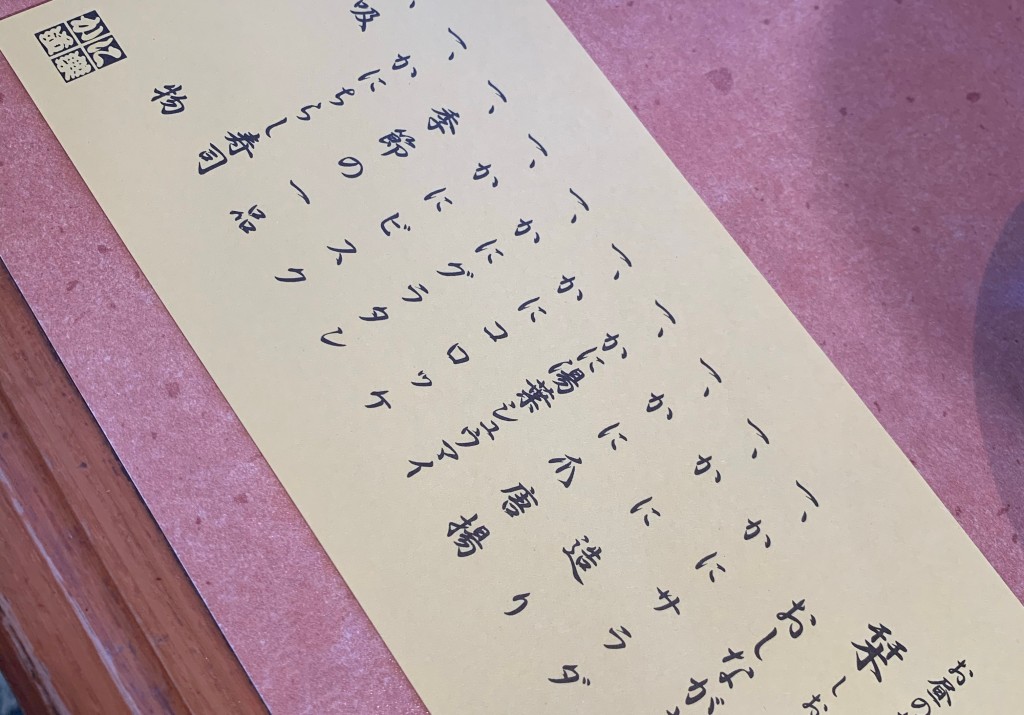 お昼の
栞 しお
おしなが
一、かにサラダ
一、かに造り
一、かに爪唐揚
一、かに湯葉シュウマイ
一、かにコロッケ
一、かにグラタン
一、かにビスク
一、季節の一品
一、かにちらし寿司
、吸物
かに道楽